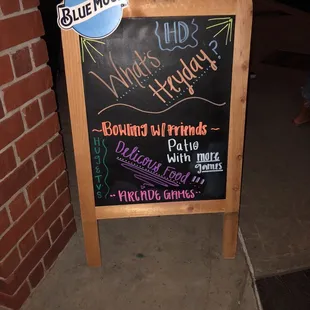 BLUE MOON
HD
What's
Heyday?
~Bowling w/ Friends~
HUGE TVS
Patio
With more
games
Delicous Food!!!
~ARCADE GAMES~